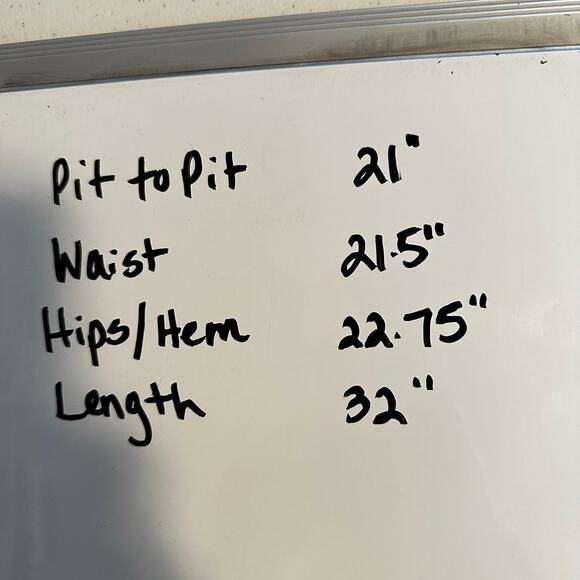 Pit to Pit 21"
Waist 21.5"
Hips/Hem 22.75"
Length 32"